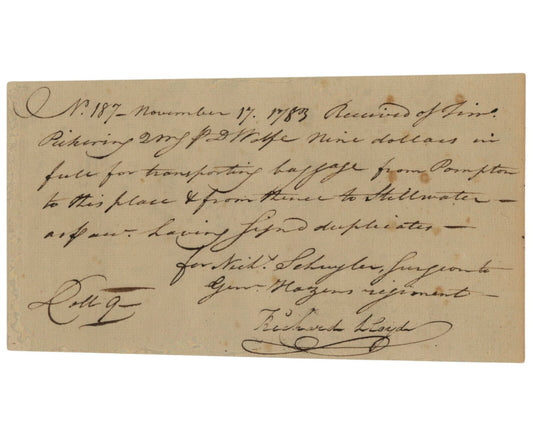 No. 187 - November 17. 1783 Received of Tim.
Pickering 2 mg p D Wolfe Nine dollars in
full for transporting baggage from Pompton
to this place & from thence to Stillwater -
as p acct. having Sign'd duplicates -
for Nichs. Schuyler Surgeon to
Genl. Hazens regiment -
Doll 9 -
Richard Lloyd